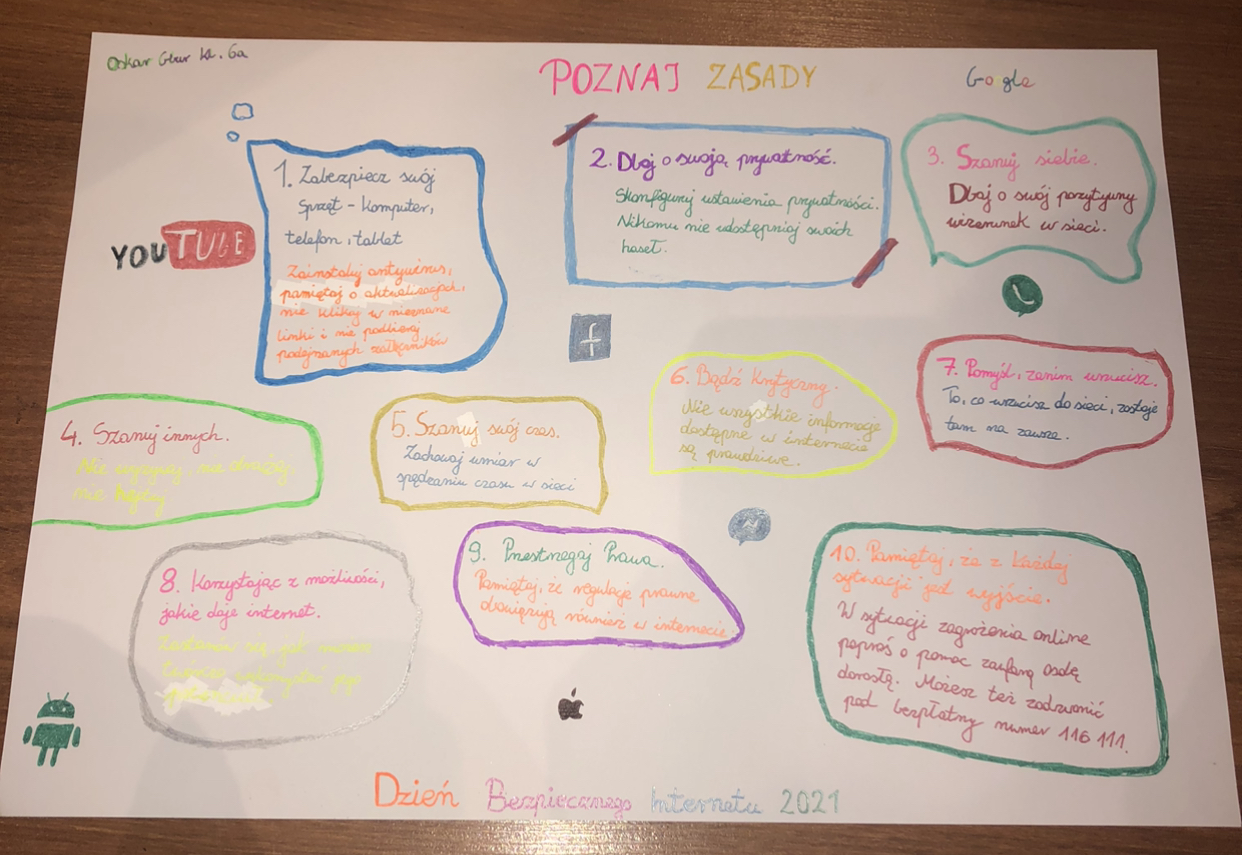 Oskar Gbur kl. 6a
POZNAJ ZASADY
Google
YOUTUBE
1. Zabezpiecz swój
Sprzęt - komputer,
telefon, tablet
Zainstaluj antywirus,
pamiętaj o aktualizacjach,
nie klikaj w nieznane
linki i nie podbieraj
podejrzanych załączników
2. Dbaj o swoją prywatność.
Skonfiguruj ustawienia prywatności.
Nikomu nie udostępniaj swoich
haseł.
3. Szanuj siebie.
Dbaj o swój pozytywny
wizerunek w sieci.
f
4. Szanuj innych.
Nie
nie hejtuj
5. Szanuj swój czas.
Zachowaj umiar w
spędzaniu czasu w sieci
6. Bądź krytyczny.
Nie wszystkie informacje
dostępne w internecie
są prawdziwe.
7. Pomyśl, zanim wrzucisz.
To, co wrzucisz do sieci, zostaje
tam na zawsze.
8. Korzystając z możliwości,
jakie daje internet.
Zastanów się, jak możesz
twórczo wykorzystać jego
9. Przestrzegaj Prawa.
Pamiętaj, że regulacje prawne
obowiązują również w internecie
10. Pamiętaj, że z każdej
sytuacji jest wyjście.
W sytuacji zagrożenia online
poproś o pomoc zaufaną osobę
dorosłą. Możesz też zadzwonić
pod bezpłatny numer 116 111.
Dzień Bezpiecznego Internetu 2021